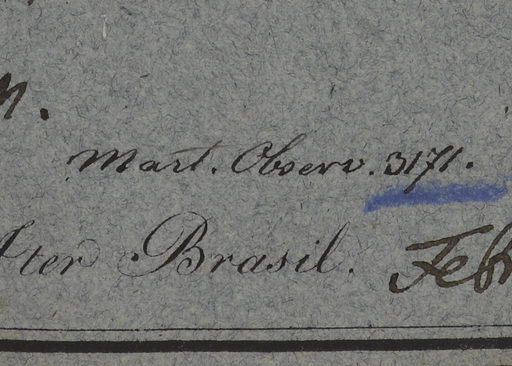 M.
Mart. Observ. 3171.
Iter Brasil. Febr